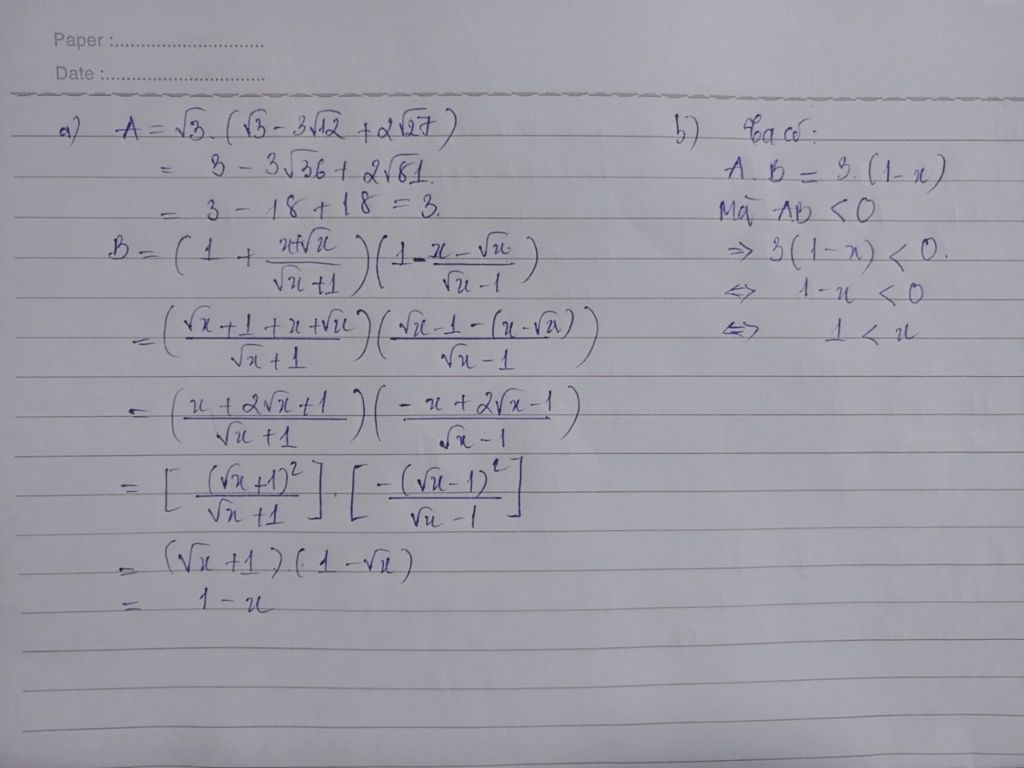 Paper :..............................
Date :................................
a) A = √3. (√3 - 3√12 + 2√27)
= 3 - 3√36 + 2√81.
= 3 - 18 + 18 = 3.
B = (1 + (x+√x)/(√x+1))(1 - (x-√x)/(√x-1))
= ((√x+1+x+√x)/(√x+1))((√x-1-(x-√x))/(√x-1))
= ((x+2√x+1)/(√x+1))((-x+2√x-1)/(√x-1))
= [(√x+1)²/(√x+1)].[-(√x-1)²/(√x-1)]
= (√x+1)(1-√x)
= 1-x
b) Ta có:
A.B = 3.(1-x)
Mà AB < 0
⇒ 3(1-x) < 0.
⇔ 1-x < 0
⇔ 1 < x